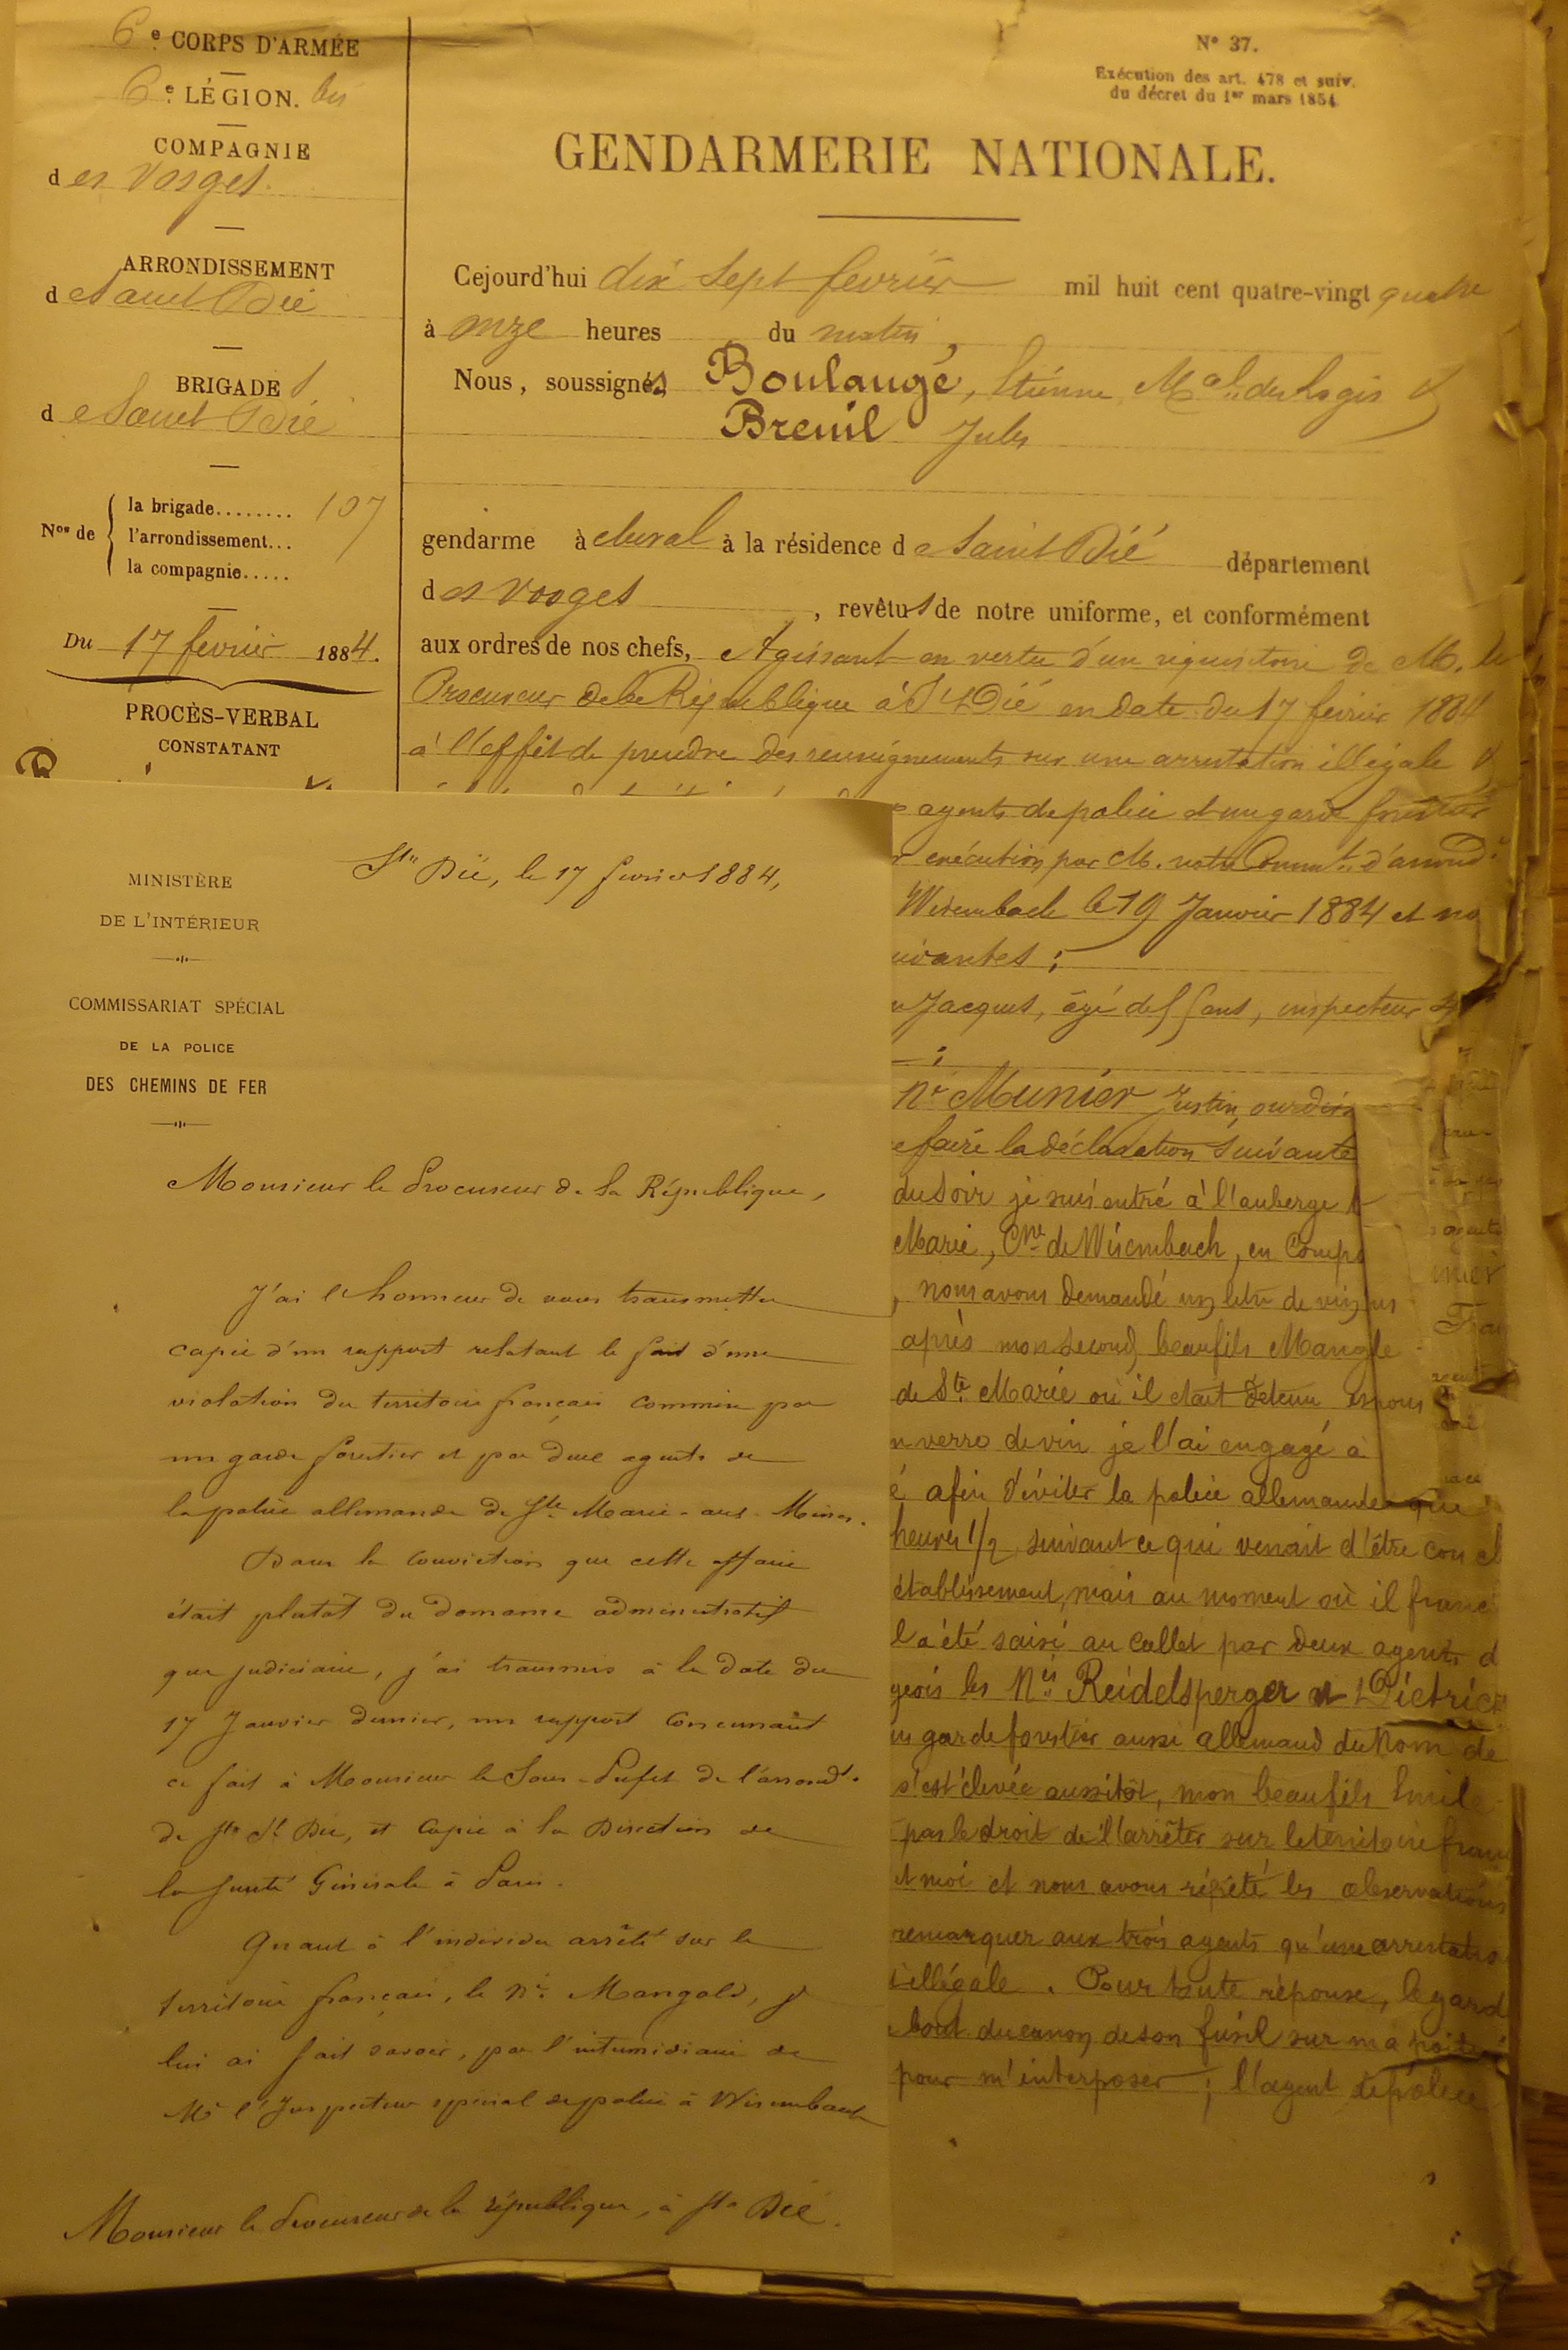 6e CORPS D'ARMÉE
6e LÉGION. bis
COMPAGNIE
des Vosges.
ARRONDISSEMENT
de Saint Dié
BRIGADE
de Saint Dié
Nos de
la brigade........ 107
l'arrondissement...
la compagnie.....
Du 17 février 1884.
PROCÈS-VERBAL
CONSTATANT
N° 37.
Exécution des art. 478 et suiv.
du décret du 1er mars 1854
GENDARMERIE NATIONALE.
Cejourd'hui dix sept février mil huit cent quatre-vingt quatre
à onze heures du matin,
Nous, soussignés Boulangé, Etienne, Mal des logis &
Breuil Jules
gendarme à cheval à la résidence de Saint Dié département
des Vosges, revêtus de notre uniforme, et conformément
aux ordres de nos chefs, Agissant en vertu d'un réquisitoire de M. le
Procureur de la République à St Dié en date du 17 février 1884
à l'effet de prendre des renseignements sur une arrestation illégale &
agents de police et un garde forestier
exécution par M. notre Commt d'arrondt
Wisembach le 19 Janvier 1884 et no
uivantes :
Jacques, âgé de ans, inspecteur
Né Munier Justin, ourdis
faire la déclaration suivante
du soir je suis entré à l'auberge
Marie, Cne de Wisembach, en comp
, nous avons demandé un litre de vin,
après mon second beaufils Mangle
de Ste Marie où il était détenu
n verre de vin je l'ai engagé à
é afin d'éviter la police allemande que
heures 1/2 suivant ce qui venait d'être con
établissement, mais au moment où il franc
l a été saisi au collet par deux agents d
geois les Nés Reidelsperger et Diétrich
garde forestier aussi allemand du nom de
s'est élevée aussitôt, mon beaufils Emile
pas le droit de l'arrêter sur le territoire fran
et moi et nous avons répété les observations
remarquer aux trois agents qu'une arrestatio
illégale. Pour toute réponse, le gard
bout du canon de son fusil sur ma poitri
pour m'interposer ; l'agent de police
MINISTÈRE
DE L'INTÉRIEUR
COMMISSARIAT SPÉCIAL
DE LA POLICE
DES CHEMINS DE FER
St Dié, le 17 février 1884,
Monsieur le Procureur de la République,
J'ai l'honneur de vous transmettre
copie d'un rapport relatant le fait d'une
violation du territoire français commise par
un garde forestier et par deux agents de
la police allemande de Ste Marie-aux-Mines.
Dans la conviction que cette affaire
était plutôt du domaine administratif
que judiciaire, j'ai transmis à la date du
17 Janvier dernier, un rapport concernant
ce fait à Monsieur le Sous-Préfet de l'arrondt.
de St Dié, et copie à la Direction de
la Sureté Générale à Paris.
Quant à l'individu arrêté sur le
territoire français, le Né Mangold, je
lui ai fait savoir, par l'intermédiaire de
Mr l'Inspecteur spécial de police à Wisembach
Monsieur le Procureur de la république, à St Dié.